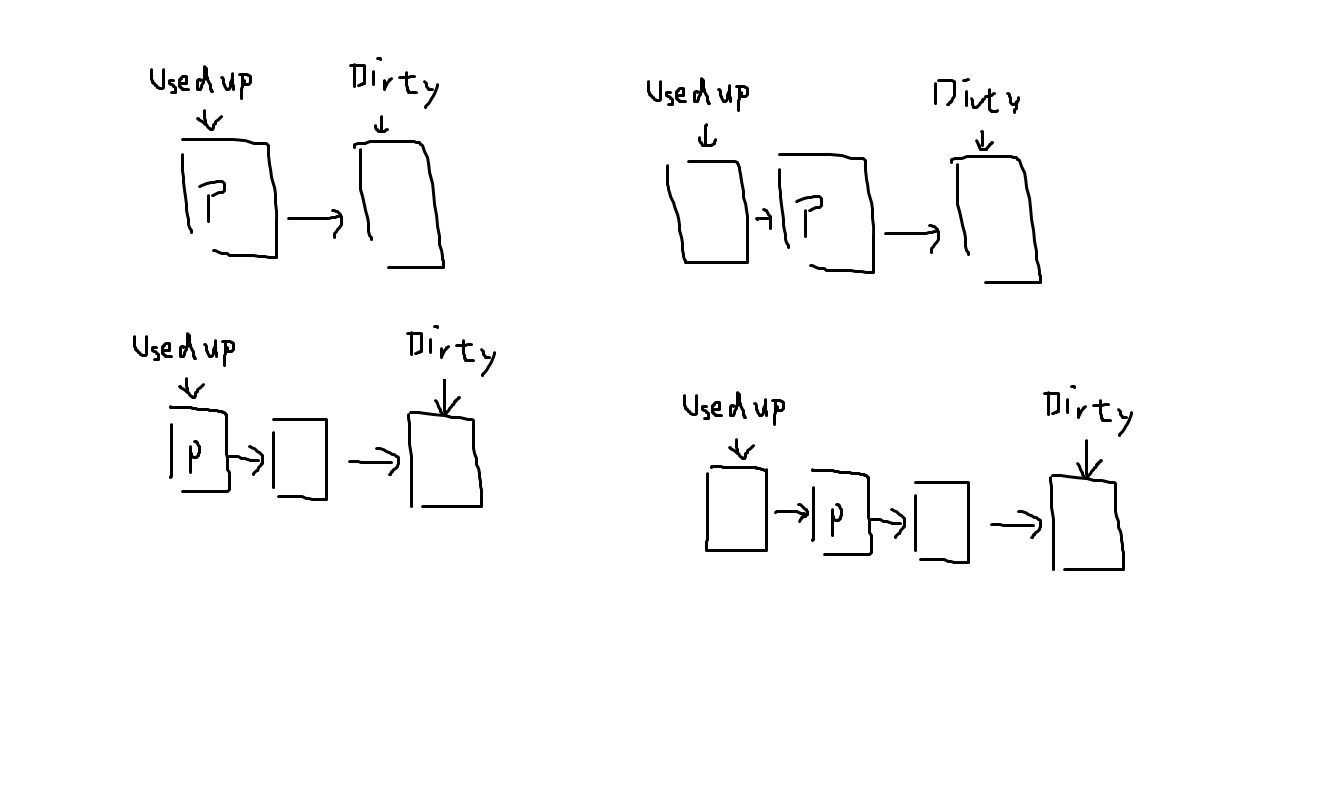 Used up
Dirty
P
Used up
Dirty
P
Used up
Dirty
P
Used up
Dirty
P